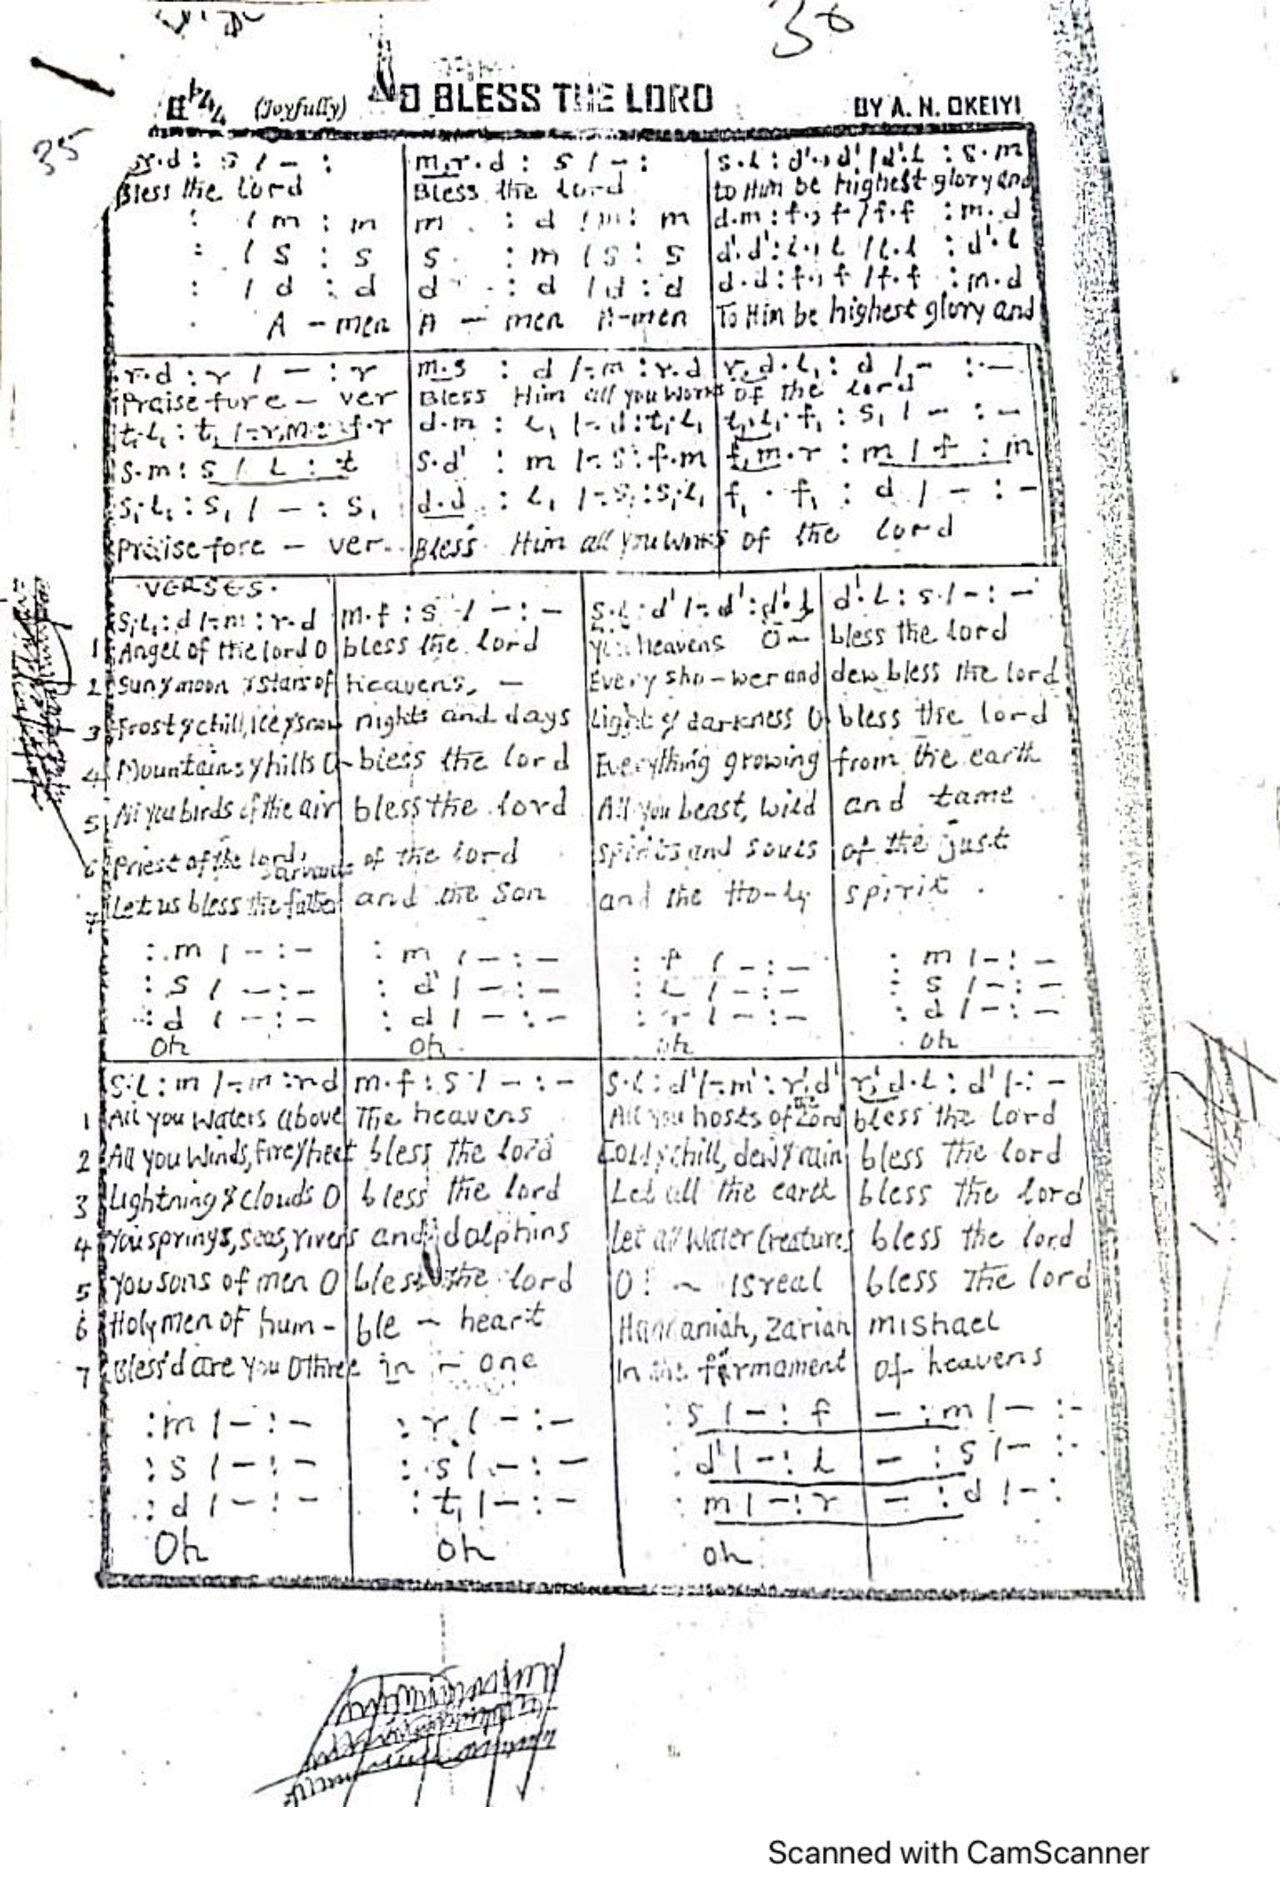 38
(Joyfully) O BLESS THE LORD BY A. N. OKEIYI
35
s.d : s / - : m,r.d : s / - : s.l : d'., d' / d'.l : s.m
Bless the Lord Bless the Lord to Him be highest glory and
: / m : m m . : d / m : m d.m : f., f / f.f : m.d
: / s : s s . : m / s : s d'.d' : l., l / l.l : d'.l
: / d : d d . : d / d : d d.d : f., f / f.f : m.d
A - men A - men A-men To Him be highest glory and
r.d : r / - : r m.s : d /-.m : r.d r,d.l, : d / - : -
Praise fore - ver Bless Him all you works of the lord
t,.l, : t, /-.r,m : f.r d.m : l, /-.d : t,.l, t,,l,.f, : s, / - : -
s.m : s / l : t s.d' : m /-.s : f.m f,m.r : m / f : m
s,.l, : s, / - : s, d.d : l, /-.s, : s,.l, f, . f, : d / - : -
Praise fore - ver Bless Him all you works of the lord
VERSES.
s,.l, : d /-.m : r.d m.f : s / - : - s.l : d' /-.d' : d'.l d'.l : s / - : -
1 Angel of the lord O bless the lord you heavens O - bless the lord
2 Sun & moon & stars of heavens, - Every sho-wer and dew bless the lord
3 Frost & chill, Ice & snow nights and days Light & darkness O bless the lord
4 Mountains & hills O - bless the lord Everything growing from the earth
5 All you birds of the air bless the lord All you beast, wild and tame
6 Priest of the lord, servants of the lord Spirits and souls of the just
7 Let us bless the father and the Son and the Ho-ly spirit .
: m / - : - : m / - : - : f / - : - : m / - : -
: s / - : - : d' / - : - : l / - : - : s / - : -
: d / - : - : d / - : - : r / - : - : d / - : -
Oh oh oh oh
s.l : m /-.m : r.d m.f : s / - : - s.l : d' /-.m' : r'.d' r',d'.l : d' / - : -
1 All you waters above The heavens All you hosts of the Lord bless the Lord
2 All you Winds, fire & heet bless the lord Cold & chill, dew & rain bless the lord
3 Lightning & clouds O bless the lord Let all the earth bless the lord
4 You springs, seas, rivers and dolphins Let all Water Creatures bless the lord
5 You sons of men O bless the lord O! ~ Isreal bless The lord
6 Holy men of hum - ble ~ heart Hananiah, Zariah mishael
7 Bless'd are you O three in ~ one In the firmament of heavens
: m / - : - : r / - : - : s / - : f - : m / - : -
: s / - : - : s / - : - : d' / - : l - : s / - : -
: d / - : - : t, / - : - : m / - : r - : d / - :
Oh oh oh
Scanned with CamScanner